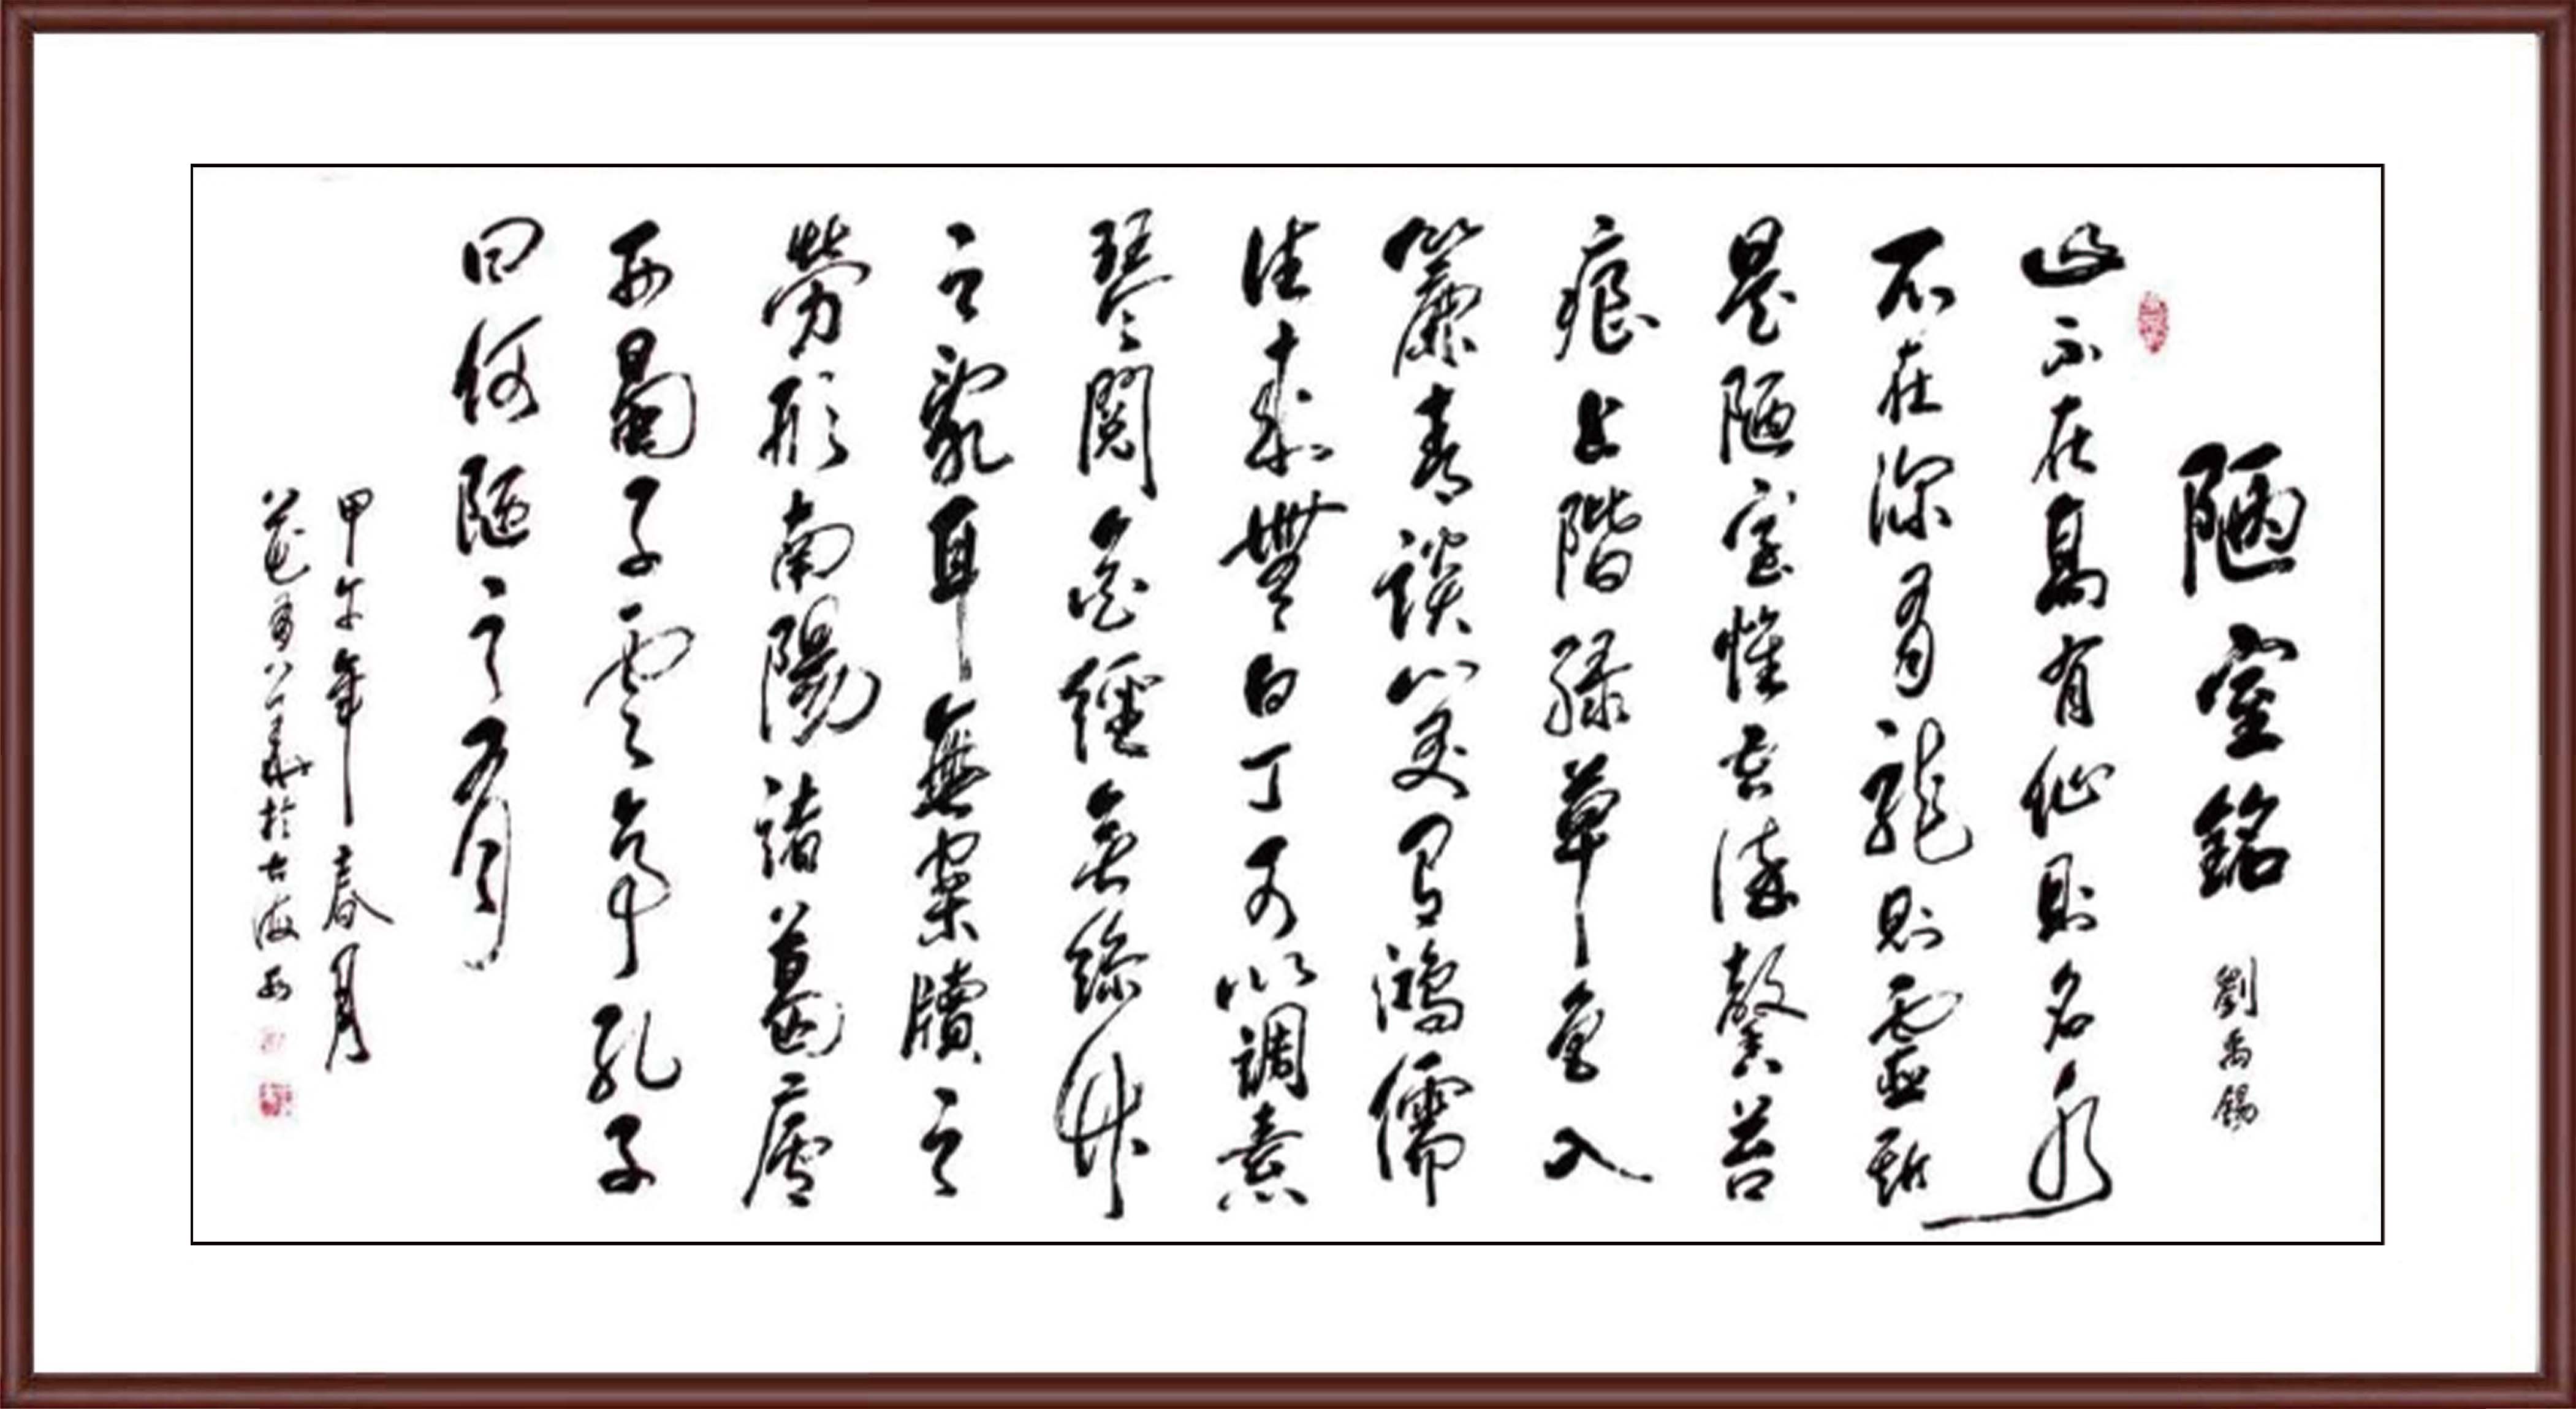 陋室銘 劉禹錫
山不在高有仙則名水
不在深有龍則靈斯
是陋室惟吾德馨苔
痕上階綠草色入
簾青談笑有鴻儒
往來無白丁可以調素
琴閱金經無絲竹
之亂耳無案牘之
勞形南陽諸葛廬
西蜀子雲亭孔子
曰何陋之有
甲午年春月
於古